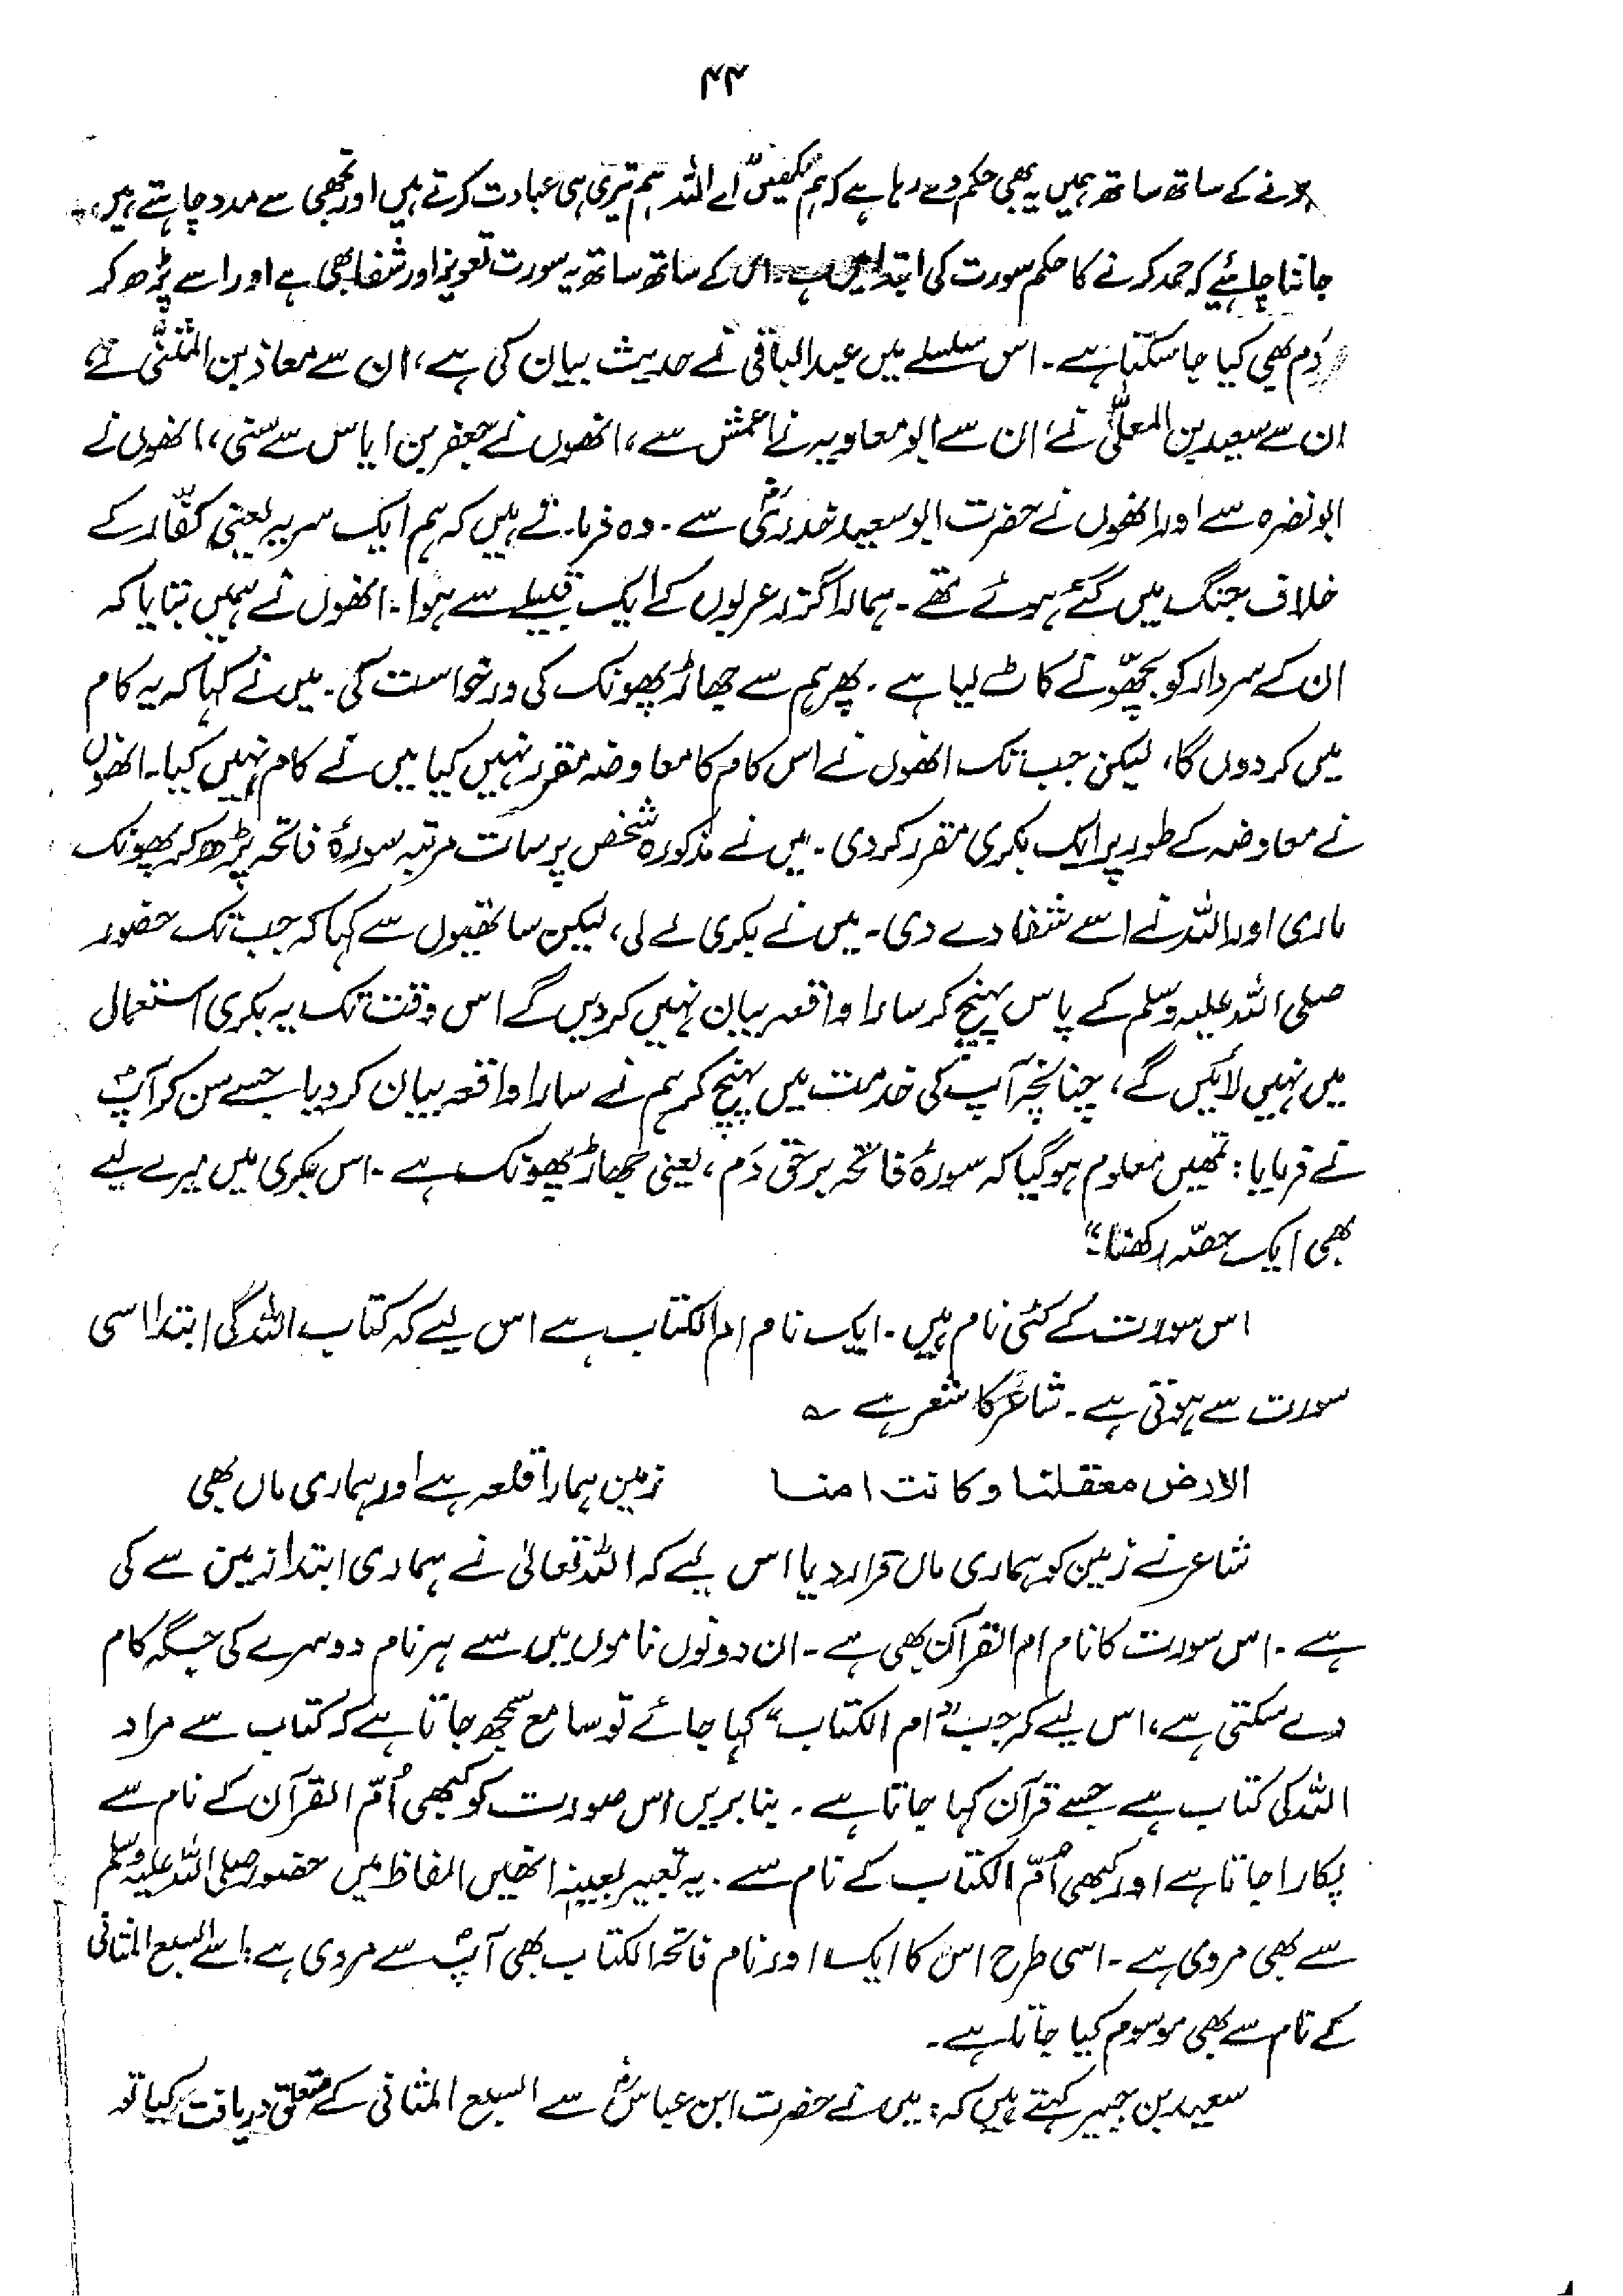 ۴۴
کرنے کے ساتھ ساتھ ہمیں یہ بھی حکم دے رہا ہے کہ ہم کہیں اے اللہ ہم تیری ہی عبادت کرتے ہیں اور تجھی سے مدد چاہتے ہیں۔
جاننا چاہیئے کہ حمد کرنے کا حکم سورت کی ابتدا میں ہے۔ اس کے ساتھ ساتھ یہ سورت تعویذ اور شفا بھی ہے اور اسے پڑھ کر
دَم بھی کیا جا سکتا ہے۔ اس سلسلے میں عبدالباقی نے حدیث بیان کی ہے، ان سے معاذ بن المثنّٰی نے،
ان سے سعید بن المعلّٰی نے، ان سے ابو معاویہ نے اعمش سے، انھوں نے جعفر بن ایاس سے سنی، انھوں نے
ابو نضرہ سے اور انھوں نے حضرت ابو سعید خدریؓ سے۔ وہ فرماتے ہیں کہ ہم ایک سریہ یعنی کفّار کے
خلاف جنگ میں گئے ہوئے تھے۔ ہمارا گزر عربوں کے ایک قبیلے سے ہوا۔ انھوں نے ہمیں بتایا کہ
ان کے سردار کو بچھّو نے کاٹ لیا ہے۔ پھر ہم سے جھاڑ پھونک کی درخواست کی۔ میں نے کہا کہ یہ کام
میں کر دوں گا، لیکن جب تک انھوں نے اس کام کا معاوضہ مقرر نہیں کیا میں نے کام نہیں کیا۔ انھوں
نے معاوضہ کے طور پر ایک بکری مقرر کر دی۔ میں نے مذکورہ شخص پر سات مرتبہ سورۂ فاتحہ پڑھ کر پھونک
ماری اور اللہ نے اسے شفا دے دی۔ میں نے بکری لے لی، لیکن ساتھیوں سے کہا کہ جب تک حضور
صلی اللہ علیہ وسلم کے پاس پہنچ کر سارا واقعہ بیان نہیں کر دیں گے اس وقت تک یہ بکری استعمال
میں نہیں لائیں گے، چنانچہ آپ کی خدمت میں پہنچ کر ہم نے سارا واقعہ بیان کر دیا جسے سن کر آپؐ
نے فرمایا: تمھیں معلوم ہو گیا کہ سورۂ فاتحہ برحق دَم، یعنی جھاڑ پھونک ہے۔ اس بکری میں میرے لیے
بھی ایک حصّہ رکھنا۔“
اس سورت کے کئی نام ہیں۔ ایک نام ام الکتاب ہے اس لیے کہ کتاب اللہ کی ابتدا اسی
سورت سے ہوتی ہے۔ شاعر کا شعر ہے ؎
الارض معقلنا وکانت امنا زمین ہمارا قلعہ ہے اور ہماری ماں بھی
شاعر نے زمین کو ہماری ماں قرار دیا اس لیے کہ اللہ تعالیٰ نے ہماری ابتدا زمین سے کی
ہے۔ اس سورت کا نام ام القرآن بھی ہے۔ ان دونوں ناموں میں سے ہر نام دوسرے کی جگہ کام
دے سکتی ہے، اس لیے کہ جب ”ام الکتاب“ کہا جائے تو سامع سمجھ جاتا ہے کہ کتاب سے مراد
اللہ کی کتاب ہے جسے قرآن کہا جاتا ہے۔ بنا بریں اس صورت کو کبھی اُمّ القرآن کے نام سے
پکارا جاتا ہے اور کبھی اُمّ الکتاب کے نام سے۔ یہ تعبیر بعینہٖ انھیں الفاظ میں حضور صلی اللہ علیہ وسلم
سے بھی مروی ہے۔ اسی طرح اس کا ایک اور نام فاتحۃ الکتاب بھی آپؐ سے مروی ہے؛ اسے السبع المثانی
کے نام سے بھی موسوم کیا جاتا ہے۔
سعید بن جبیر کہتے ہیں کہ: میں نے حضرت ابن عباسؓ سے السبع المثانی کے متعلق دریافت کیا تو